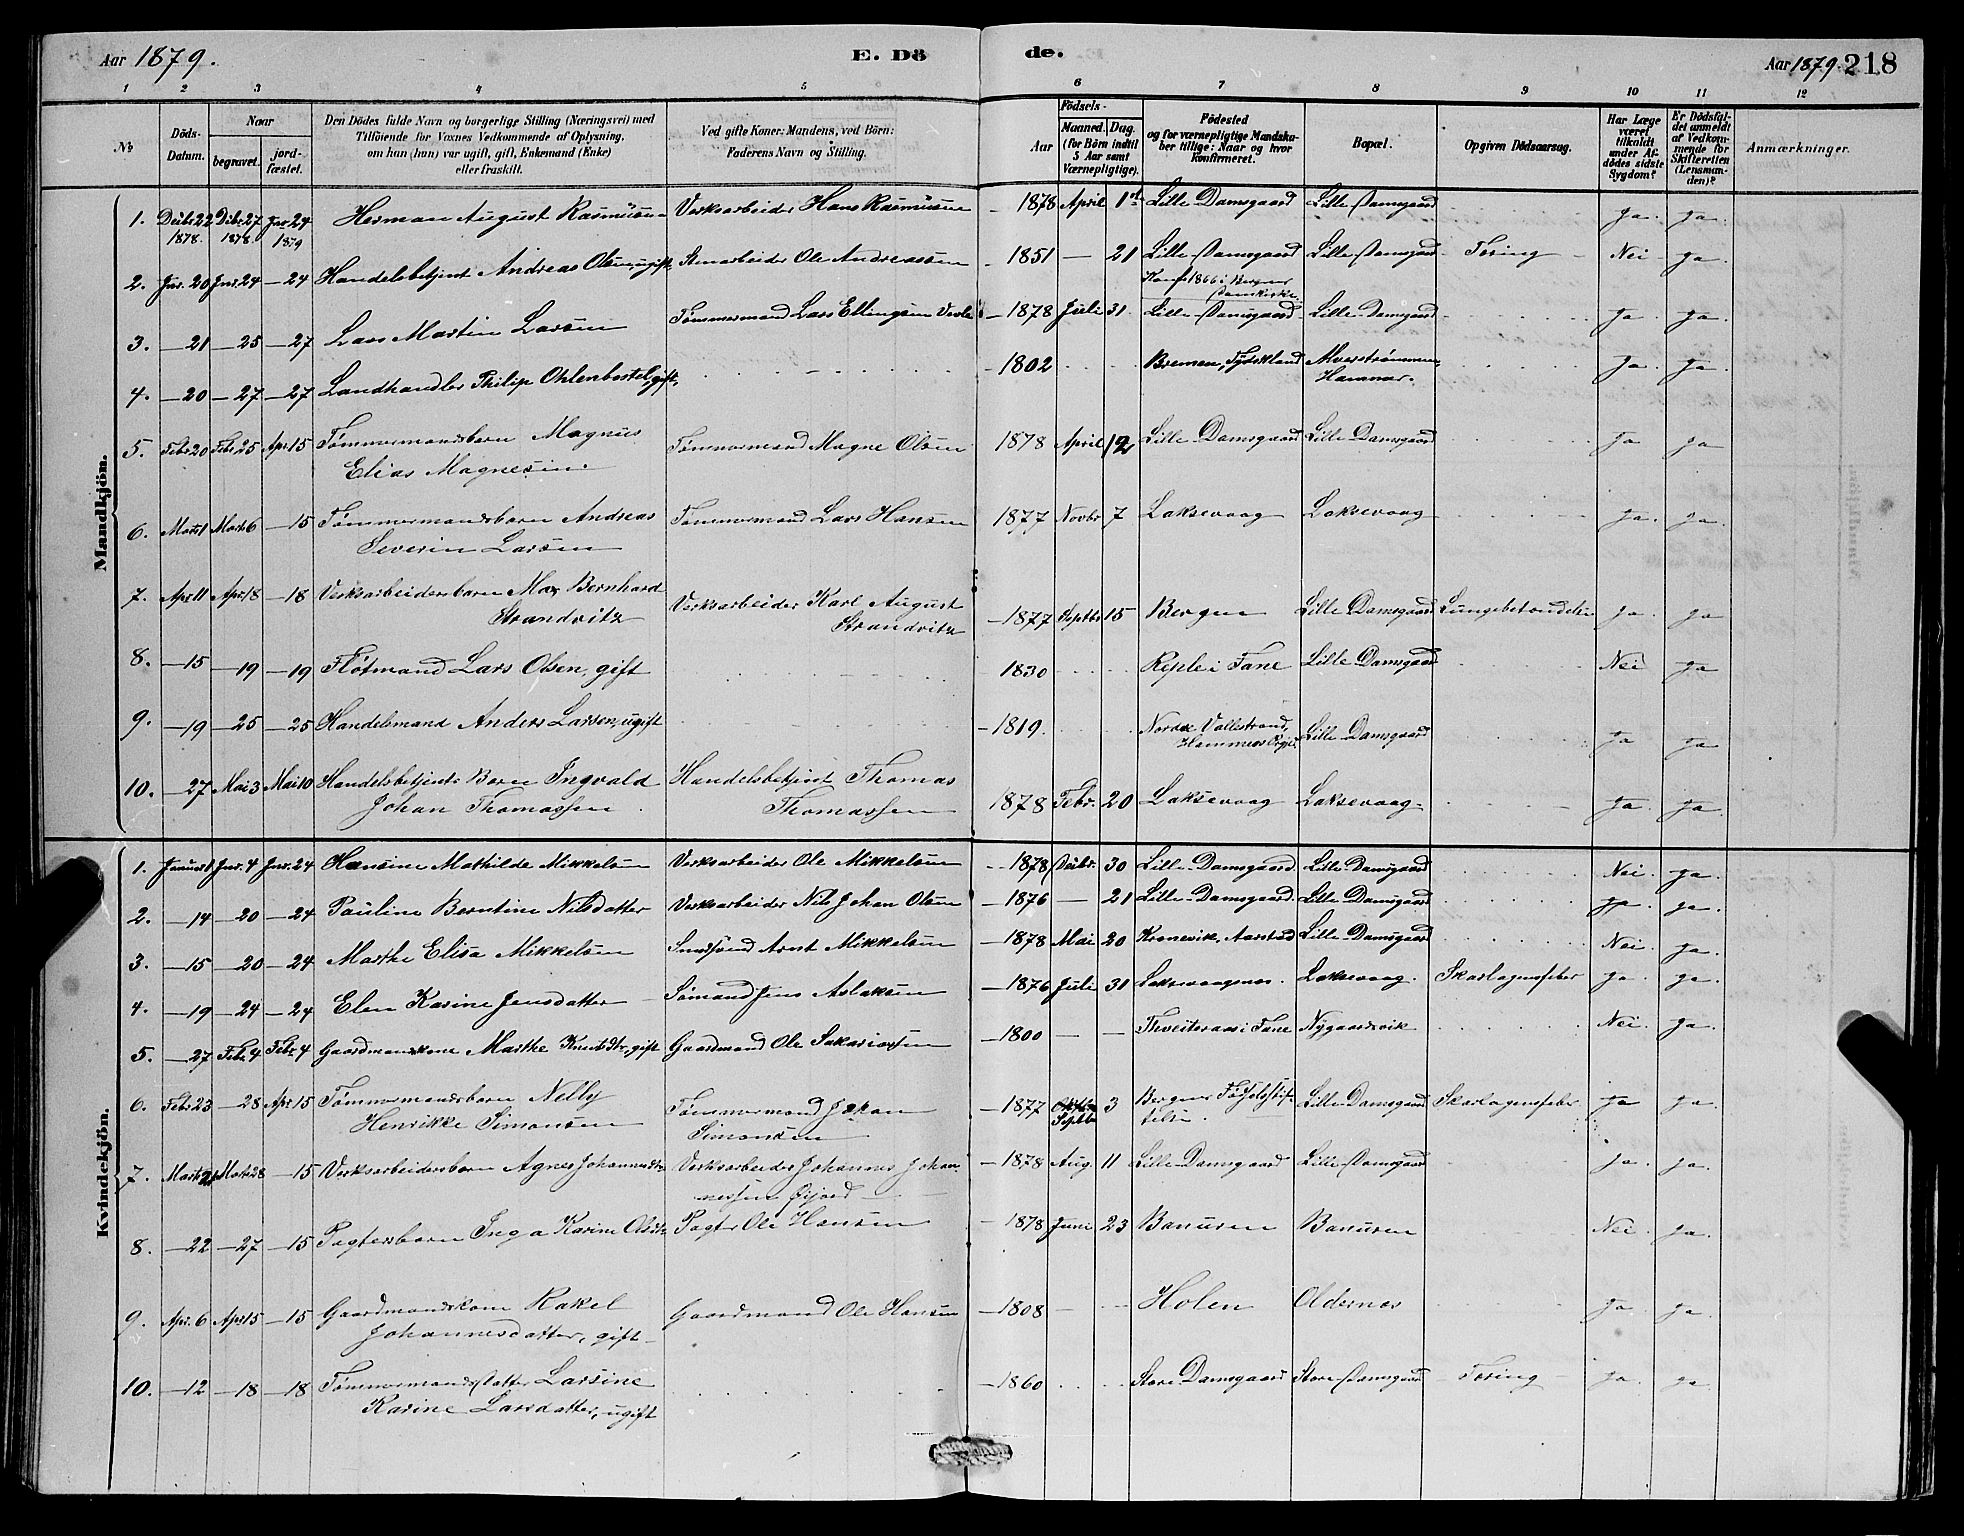 Aar 1879.
E. Dö
de.
Aar 1879. 218
1 2 3 4 5 6 7 8 9 10 11 12
No
Döds-Datum.
Naar
begravet.
jord-fæstet.
Den Dödes fulde Navn og borgerlige Stilling (Næringsvei) med
Tilföiende for Voxnes Vedkommende af Oplysning,
om han (hun) var ugift, gift, Enkemand (Enke)
eller fraskilt.
Ved gifte Koner: Mandens, ved Börn:
Faderens Navn og Stilling.
Födsels-
Aar
Maaned. Dag.
(for Börn indtil
5 Aar samt
Værnepligtige).
Födested
og for værnepligtige Mandska-
ber tillige: Naar og hvor
konfirmeret.
Bopæl.
Opgiven Dödsaarsag.
Har Læge
været
tilkaldt
under Af-
dödes sidste
Sygdom?
Er Dödsfal-
det anmeldt
af Vedkom-
mende for
Skifteretten
(Lensman-
den)?
Anmærkninger.
Mandkjön.
1. Debr 22 1878. Debr 27 1878. Jnr 24 1879 Herman August Rasmusen Verksarbeider Hans Rasmusen - 1878 April 1st Lille Damsgaard Lille Damsgaard Ja. Ja.
2. Jnr. 20 Jnr. 24 - 24 Handelsbetjent Andreas Olsen, ugift Stenarbeider Ole Andreassen - 1851 - 21 Lille Damsgaard Lille Damsgaard Tæring - Nei Ja.
Konf. 1866 i Bergens Domkirke.
3. - 21 - 25 - 27 Lars Martin Larsen Tømmermand Lars Ellingsen - 1878 Juli 31. Lille Damsgaard Lille Damsgaard Ja. Ja.
4. - 20 - 27 - 27 Landhandler Philip Ohlenbostel, gift. - 1802 Bremen, Tydskland Alverstrømmen, Hammer. Ja. Ja.
5. Febr 20 Febr 25 Apr 15 Tømmermandsbarn Magnus
Elias Magnesen. Tømmermand Magne Olsen 1878 April 12 Lille Damsgaard Lille Damsgaard Ja Ja
6. Marts 1 Marts 6 - 15 Tømmermandsbarn Andreas
Severin Larsen Tømmermand Lars Hansen 1877 Novbr 7 Laksevaag Laksevaag Ja. Ja.
7. Apr 11 Apr 18 - 18 Verksarbeidersbarn Max Bernhard
Strandvitz Verksarbeider Karl August
Strandvitz - 1877 Septbr 15 Bergen Lille Damsgaard Lungebetændelse Ja Ja
8. - 15 - 19 - 19 Fløtmand Lars Olsen, gift 1830 i Fane Lille Damsgaard Nei Ja
9. - 19 - 25 - 25 Handelsmand Anders Larsen, ugift - 1819. Nordre Vallestrand,
Hammers Prgjd. Lille Damsgaard Ja Ja
10. - 27 Mai 3 Mai 10 Handelsbetjents Barn Ingvald
Johan Thomassen Handelsbetjent Thomas
Thomassen 1878 Febr. 20 Laksevaag Laksevaag. Ja. Ja
Kvindekjön.
1. Januar 1 Jnr. 4 Jnr. 24 Hansine Mathilde Mikkelsen Verksarbeider Ole Mikkelsen - 1878 Debr. 30 Lille Damsgaard Lille Damsgaard Nei. Ja.
2. - 14 - 20 - 24 Pauline Berntine Nilsdatter Verksarbeider Nils Johan Olsen - 1876 - 21 Lille Damsgaard. Lille Damsgaard Ja. Ja.
3. - 15 - 20 - 24 Marthe Elisa Mikkelsen Smedsvend Arnt Mikkelsen - 1878 Mai 20 Kronevik, Aarstad Lille Damsgaard Nei. Ja.
4. - 19 - 24 - 24 Elen Karine Jensdatter Sømand Jens Aslaksen - 1876 Juli 31 Laksevaagsnes. Laksevaag. Skarlagensfeber Ja. Ja.
5. - 27 Febr 4 Febr. 4 Gaardmandskone Marthe Knutsdtr., gift Gaardmand Ole Sakariassen - 1800 - - Thveiteraas i Fane Nygaardsvik Nei. Ja.
6. Febr 23 - 28 Apr 15 Tømmermandsbarn Nelly
Henrikke Simonsen Tømmermand Johan
Simonsen - 1877 Septbr 3 Bergens Fødselsstif-
telse. Lille Damsgaard Skarlagensfeber Ja Ja.
7. Marts 21 Marts 28 - 15 Verksarbeidersbarn Agnes Johannesdtr. Verksarbeider Johannes Johan-
nessen - 1878 Aug. 11 Lille Damsgaard Lille Damsgaard Ja. Ja.
8. - 22 - 27 - 15 Pagtersbarn Inga Karine Olsdtr. Pagter Ole Hansen - 1878 Juni 23 Banusen Banusen Nei. Ja.
9. Apr. 6 Apr 15 - 15 Gaardmandskone Rakel
Johannesdatter, gift - Gaardmand Ole Hansen - 1808 - - Holen Oldernes Ja. Ja
10. - 12 - 18 - 18 Tømmermandsdatter Larsine
Karine Larsdatter, ugift - 1860 Store Damsgaard Store Damsgaard - Tæring - Ja. Ja